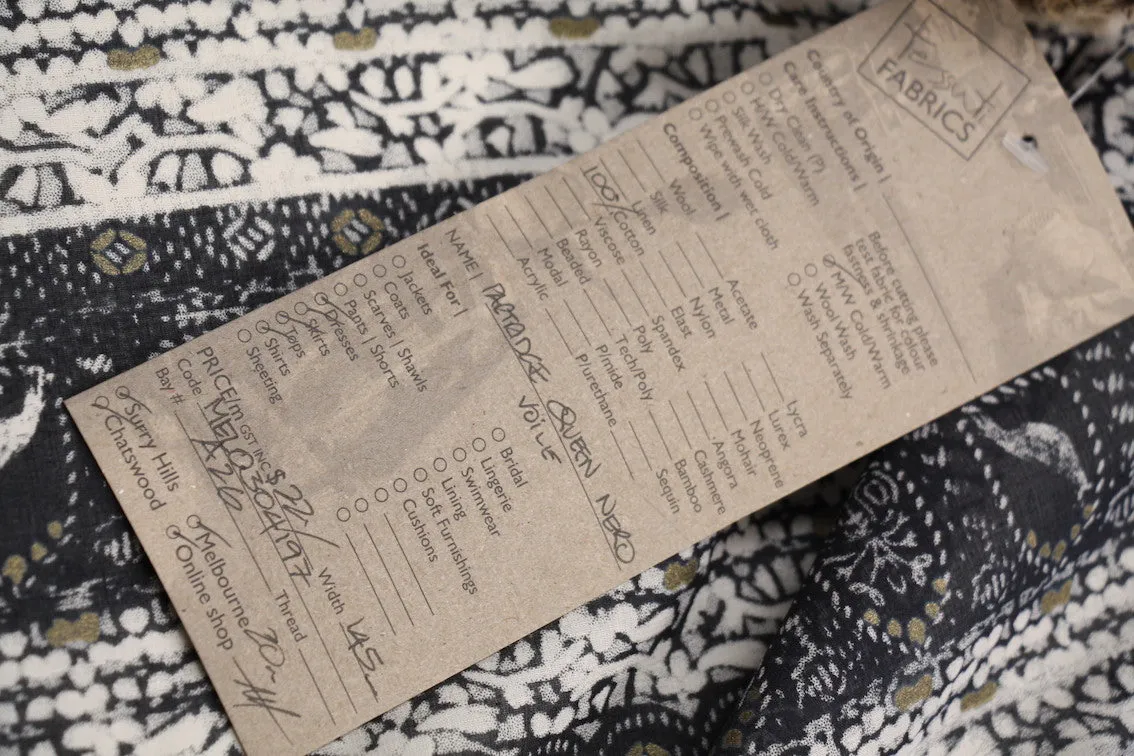 Tessuti
FABRICS
Country of Origin |
Care Instructions |
Dry Clean (P)
H/W Cold/Warm
Silk Wash
Prewash Cold
Wipe with wet cloth
Before cutting please
test fabric for colour
fastness & shrinkage
M/W Cold/Warm
Wool Wash
Wash Separately
Composition |
Wool
Silk
Linen
100% Cotton
Viscose
Rayon
Beaded
Modal
Acrylic
Acetate
Metal
Nylon
Elast
Spandex
Poly
Tech/Poly
P/mide
P/urethane
Lycra
Lurex
Neoprene
Mohair
Angora
Cashmere
Bamboo
Sequin
NAME | PARTRIDGE QUEEN NERO
VOILE
Ideal For |
Jackets
Coats
Scarves | Shawls
Pants | Shorts
Dresses
Skirts
Tops
Shirts
Sheeting
Bridal
Lingerie
Swimwear
Lining
Soft Furnishings
Cushions
PRICE/m GST INC $22/ Width 145
Code MEL0304197 Thread
Bay # A26
Surry Hills
Chatswood
Melbourne 20m
Online shop